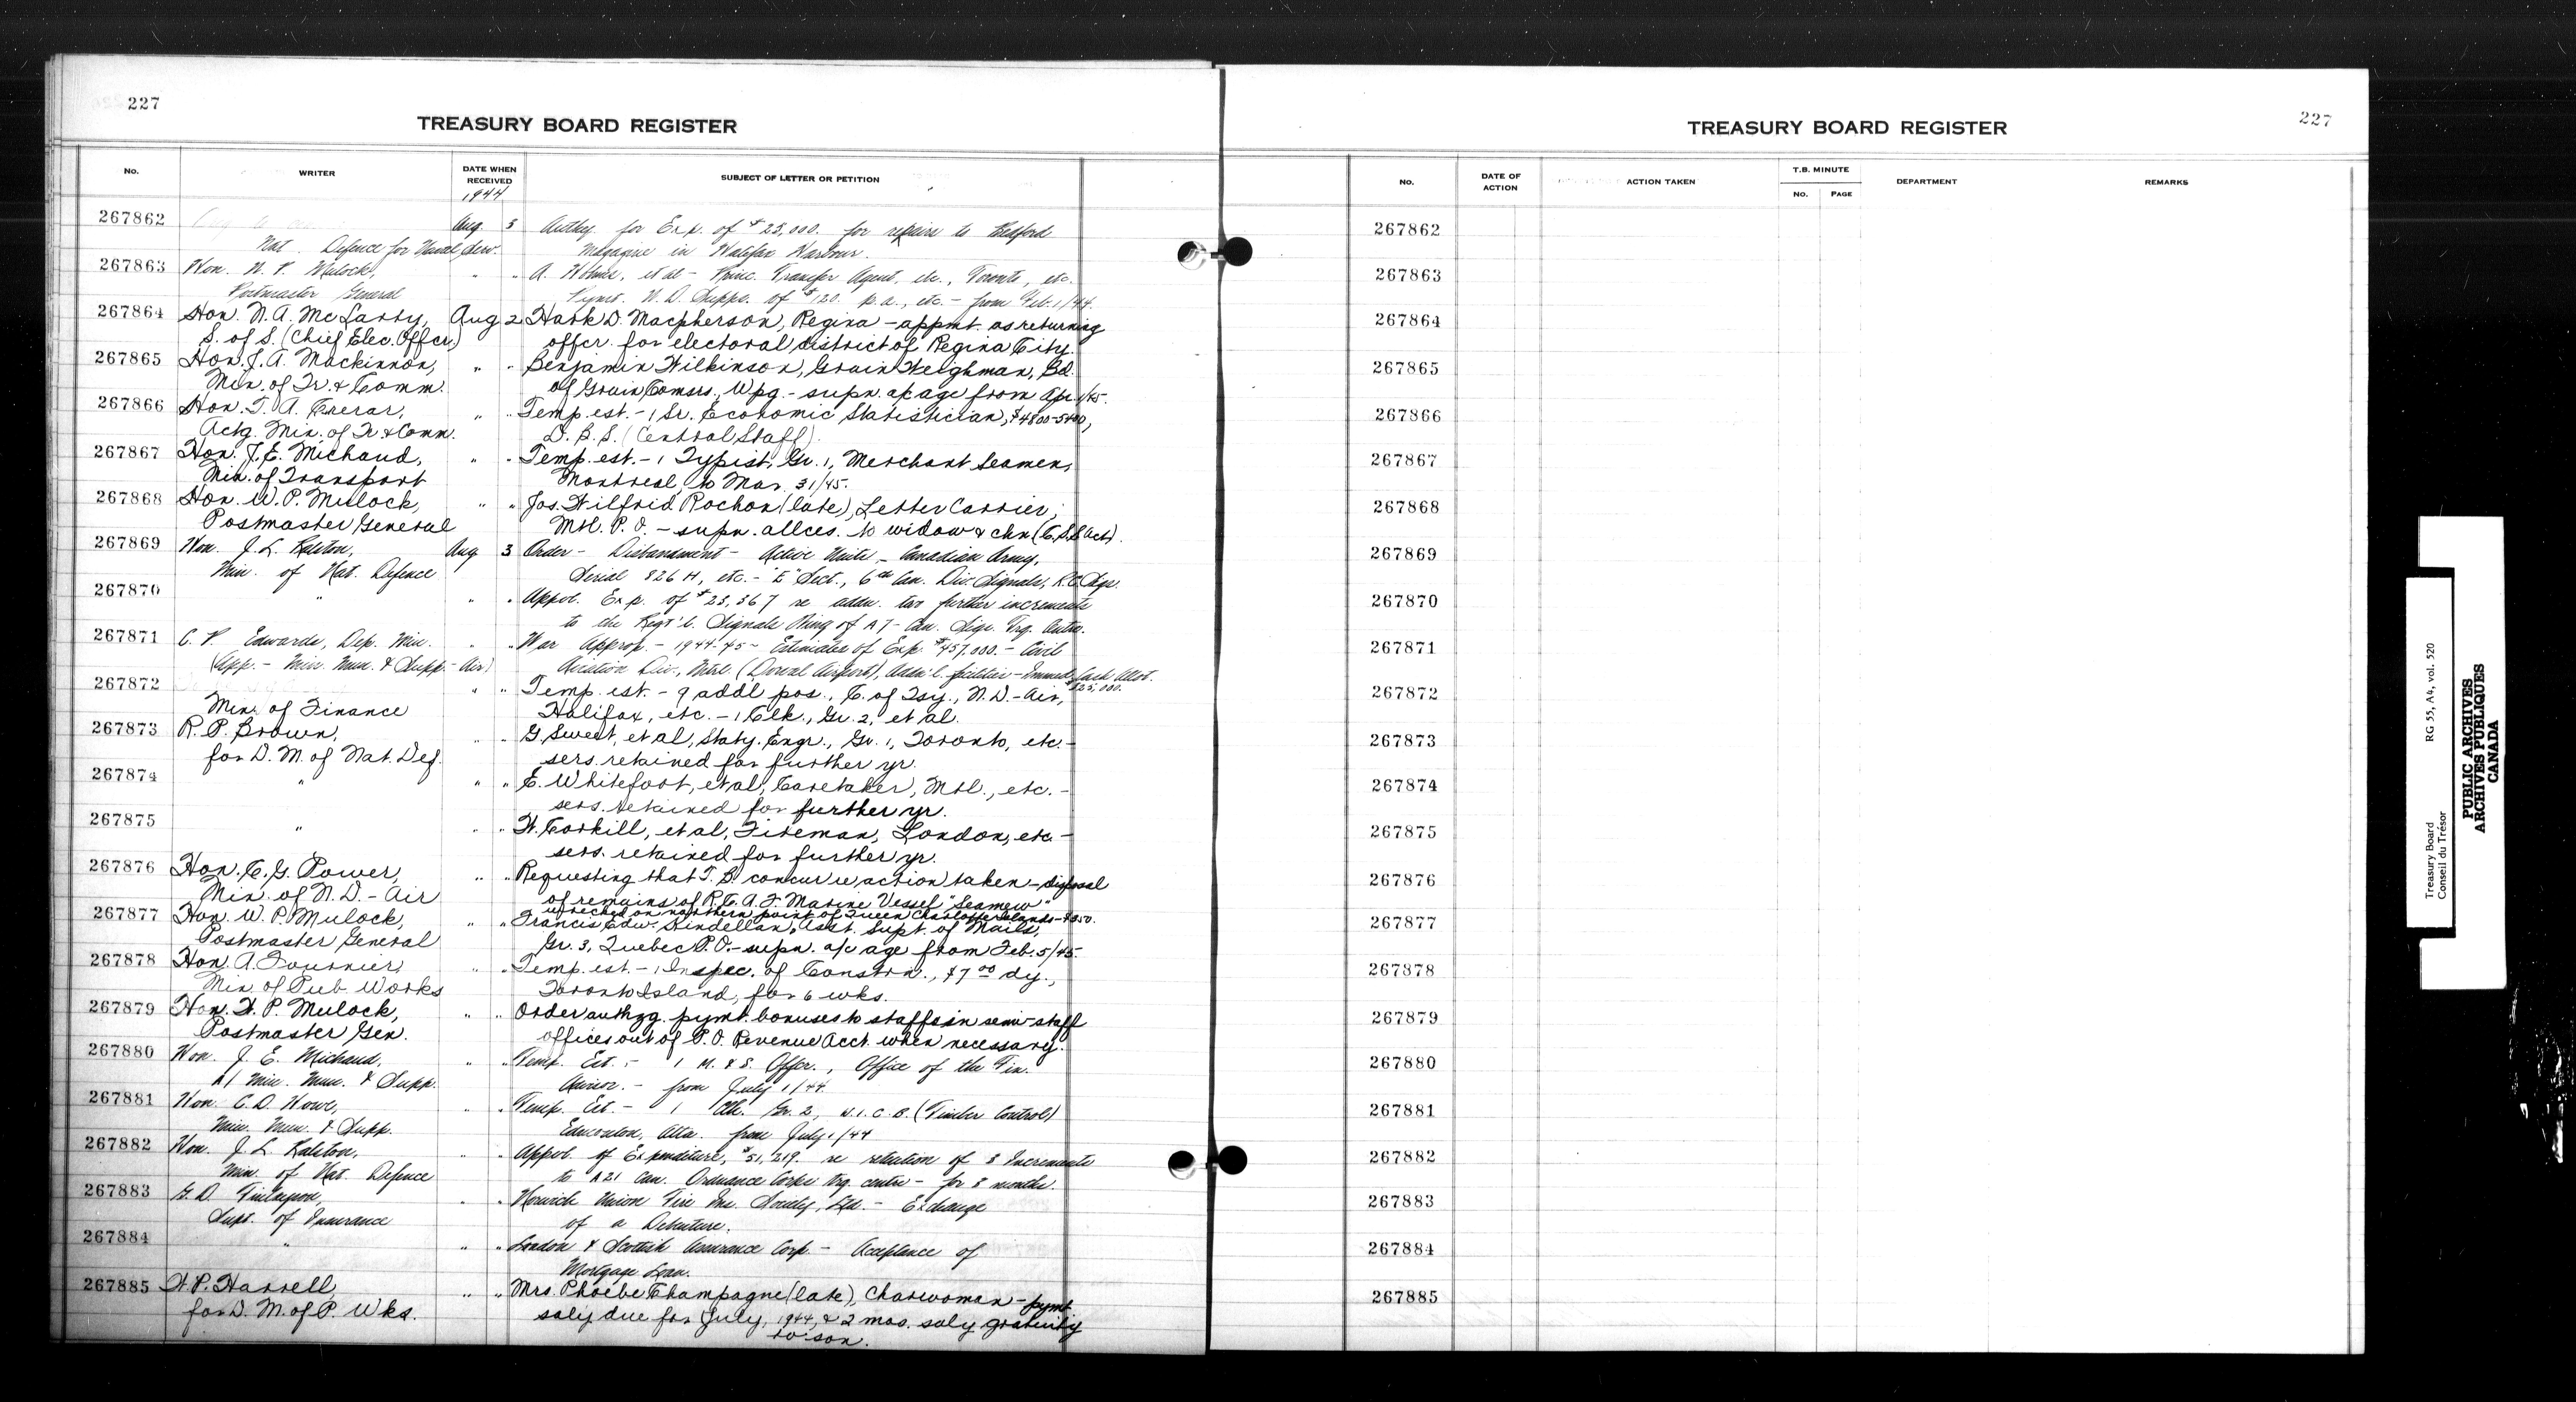 227
TREASURY BOARD REGISTER
No.
WRITER
DATE WHEN RECEIVED
SUBJECT OF LETTER OR PETITION
1944
267862 Aug. 3 Authy. for Exp. of $25,000. for repairs to Bedford
Nat. Defence for Naval Serv. Magazine in Halifax Harbour.
267863 Hon. W. P. Mulock, " " A. Holmes, et al - Princ. Transfer Agent, etc., Toronto, etc.
Postmaster General Pymt. W. D. Supps. of $120. p.a., etc. - from Feb. 1/44.
267864 Hon. N. A. McLarty, Aug 2 Hark D. Macpherson, Regina - appmt. as returning
S. of S. (Chief Elec. Offcr.) offcr. for electoral district of Regina City.
267865 Hon. J. A. Mackinnon, " " Benjamin Wilkinson, Grain Weighman, Bd.
Min. of Tr. & Comm. of Grain Comsrs., Wpg. - supn. a/c age from Apr. 1/45.
267866 Hon. T. A. Crerar, " " Temp. est. - 1 Sr. Economic Statistician, $4800-5400,
Actg. Min. of Tr. & Comm. D. B. S. (Central Staff).
267867 Hon. J. E. Michaud, " " Temp. est. - 1 Typist, Gr. 1, Merchant Seamen,
Min. of Transport Montreal, to Mar. 31/45.
267868 Hon. W. P. Mulock, " " Jos. Wilfrid Rochon (late), Letter Carrier,
Postmaster General Mtl. P. O. - supn. allces. to widow & chn (C.S.S. Act).
267869 Hon. J. L. Ralston, Aug 3 Order - Disbandment - Active Units - Canadian Army,
Min. of Nat. Defence Serial 826 H, etc. - "E" Sect., 6th Can. Div. Signals, R.C. Sigs.
267870 " " " Appvl. Exp. of $23,367 re addn. two further increments
to the Regt'l. Signals Wing of A7 - Can. Sigs. Trg. Centre.
267871 C. P. Edwards, Dep. Min. " " War Approp. - 1944-45 - Estimates of Exp. $457,000. - Civil
(App. - Min. Mun. & Supp. - Air) Aviation Div., Mtrl. (Dorval Airport), Addn'l. facilities - Immed. Cash Allot.
$25,000.
267872 " " Temp. est. - 9 addl pos., C. of Tsy., N. D. - Air,
Min. of Finance Halifax, etc. - 1 Clk., Gr. 2, et al.
267873 R. P. Brown, " " G. Sweet, et al, Staty. Engr., Gr. 1, Toronto, etc. -
for D. M. of Nat. Def. sers. retained for further yr.
267874 " " " E. Whitefoot, et al, Caretaker, Mtl., etc. -
sers. retained for further yr.
267875 " " " W. Corkill, et al, Fireman, London, etc -
sers. retained for further yr.
267876 Hon. C. G. Power, " " Requesting that T. B. concur re action taken - disposal
Min. of N. D. - Air of remains of R. C. A. F. Marine Vessel "Seamew"
wrecked on northern point of Queen Charlotte Islands - $350.
267877 Hon. W. P. Mulock, " " Francis Edw. Kindellan, Asst. Supt. of Mails,
Postmaster General Gr. 3, Quebec P. O. - supn. a/c age from Feb. 5/45.
267878 Hon. A. Fournier, " " Temp. est. - 1 Inspec. of Constrn., $7.00 dy.,
Min. of Pub. Works Toronto Island, for 6 wks.
267879 Hon. W. P. Mulock, " " Order authzg. pymt. bonuses to staffs in semi-staff
Postmaster Gen. offices out of P. O. Revenue Acct. when necessary.
267880 Hon. J. E. Michaud, " " Temp. Est. - 1 M. & S. Offcr., Office of the Fin.
A/ Min. Mun. & Supp. Advisor. - from July 1/44.
267881 Hon. C. D. Howe, " " Temp. Est. - 1 Clk. Gr. 2, W.I.C.B. (Timber Control)
Min. Mun. & Supp. Edmonton, Alta. from July 1/44
267882 Hon. J. L. Ralston, " " Appvl. of Expenditure, $51,219. re retention of 3 Increments
Min. of Nat. Defence to A21 Can. Ordnance Corps Trg. centre - for 3 months.
267883 G. D. Finlayson, " " Norwich Union Fire Ins. Society, Ltd. - Exchange
Supt. of Insurance of a Debenture.
267884 " " " London & Scottish Assurance Corp. - Acceptance of
Mortgage Loan.
267885 W. P. Harrell, " " Mrs. Phoebe Champagne (late), Charwoman - pymt
for D. M. of P. Wks. saly due for July, 1944, & 2 mos. saly gratuity
to son.
TREASURY BOARD REGISTER
227
No.
DATE OF ACTION
ACTION TAKEN
T.B. MINUTE
No.
PAGE
DEPARTMENT
REMARKS
267862
267863
267864
267865
267866
267867
267868
267869
267870
267871
267872
267873
267874
267875
267876
267877
267878
267879
267880
267881
267882
267883
267884
267885
Treasury Board
Conseil du Trésor
RG 55, A4, vol. 520
PUBLIC ARCHIVES
ARCHIVES PUBLIQUES
CANADA